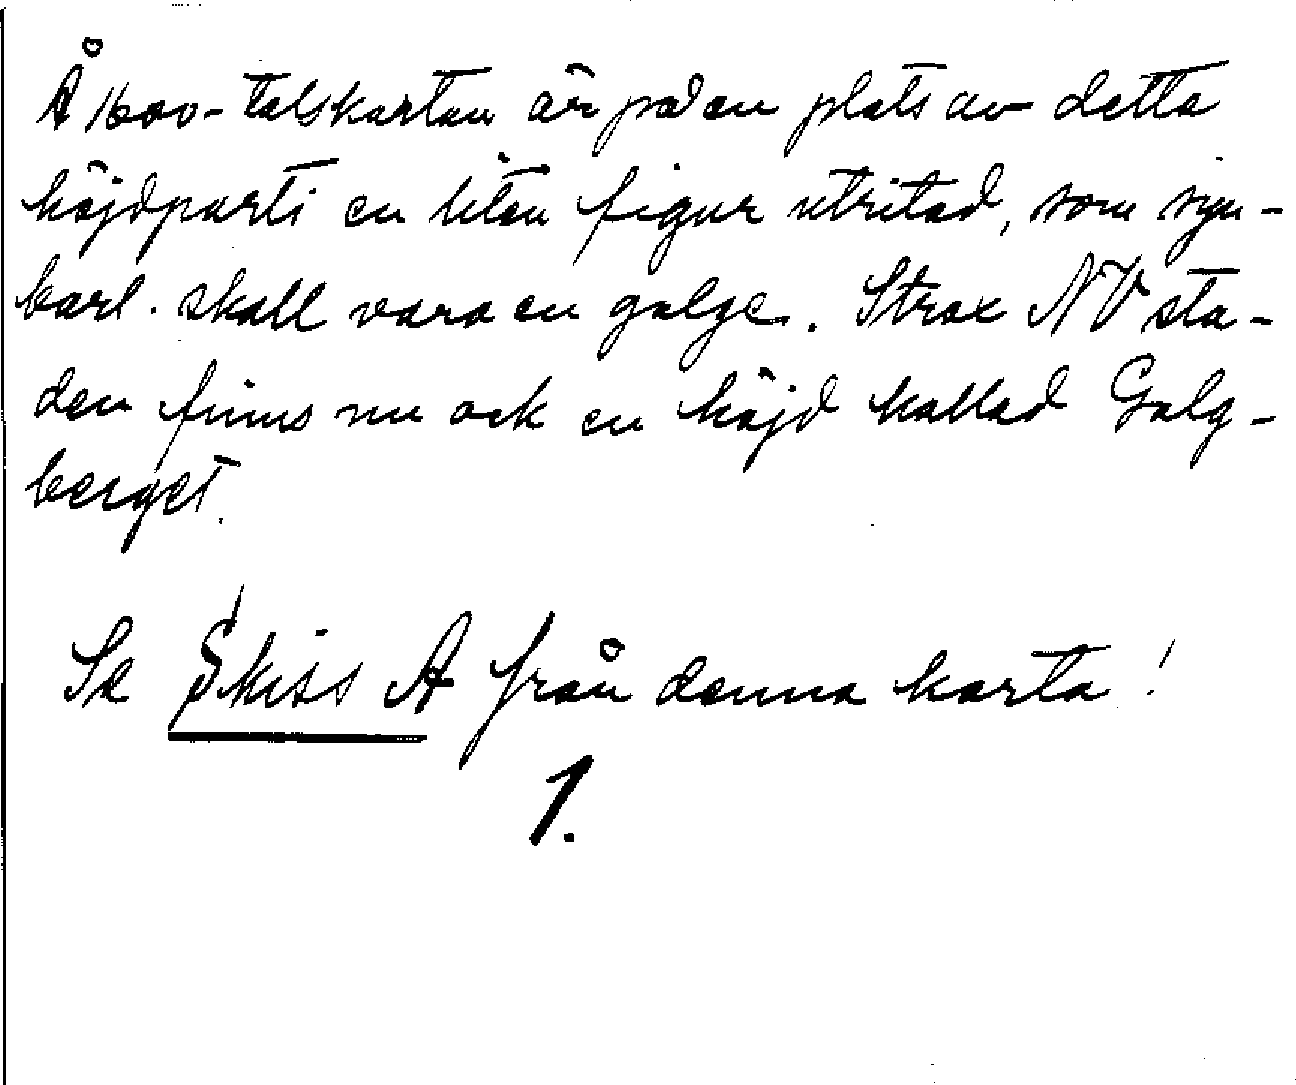 Å 1600-talskartan är på en plats av detta
höjdparti en liten figur utritad, som syn-
barl. skall vara en galge. Strax NV sta-
den finns nu ock en höjd kallad Galg-
berget.
Se Skiss A från denna karta!
1.